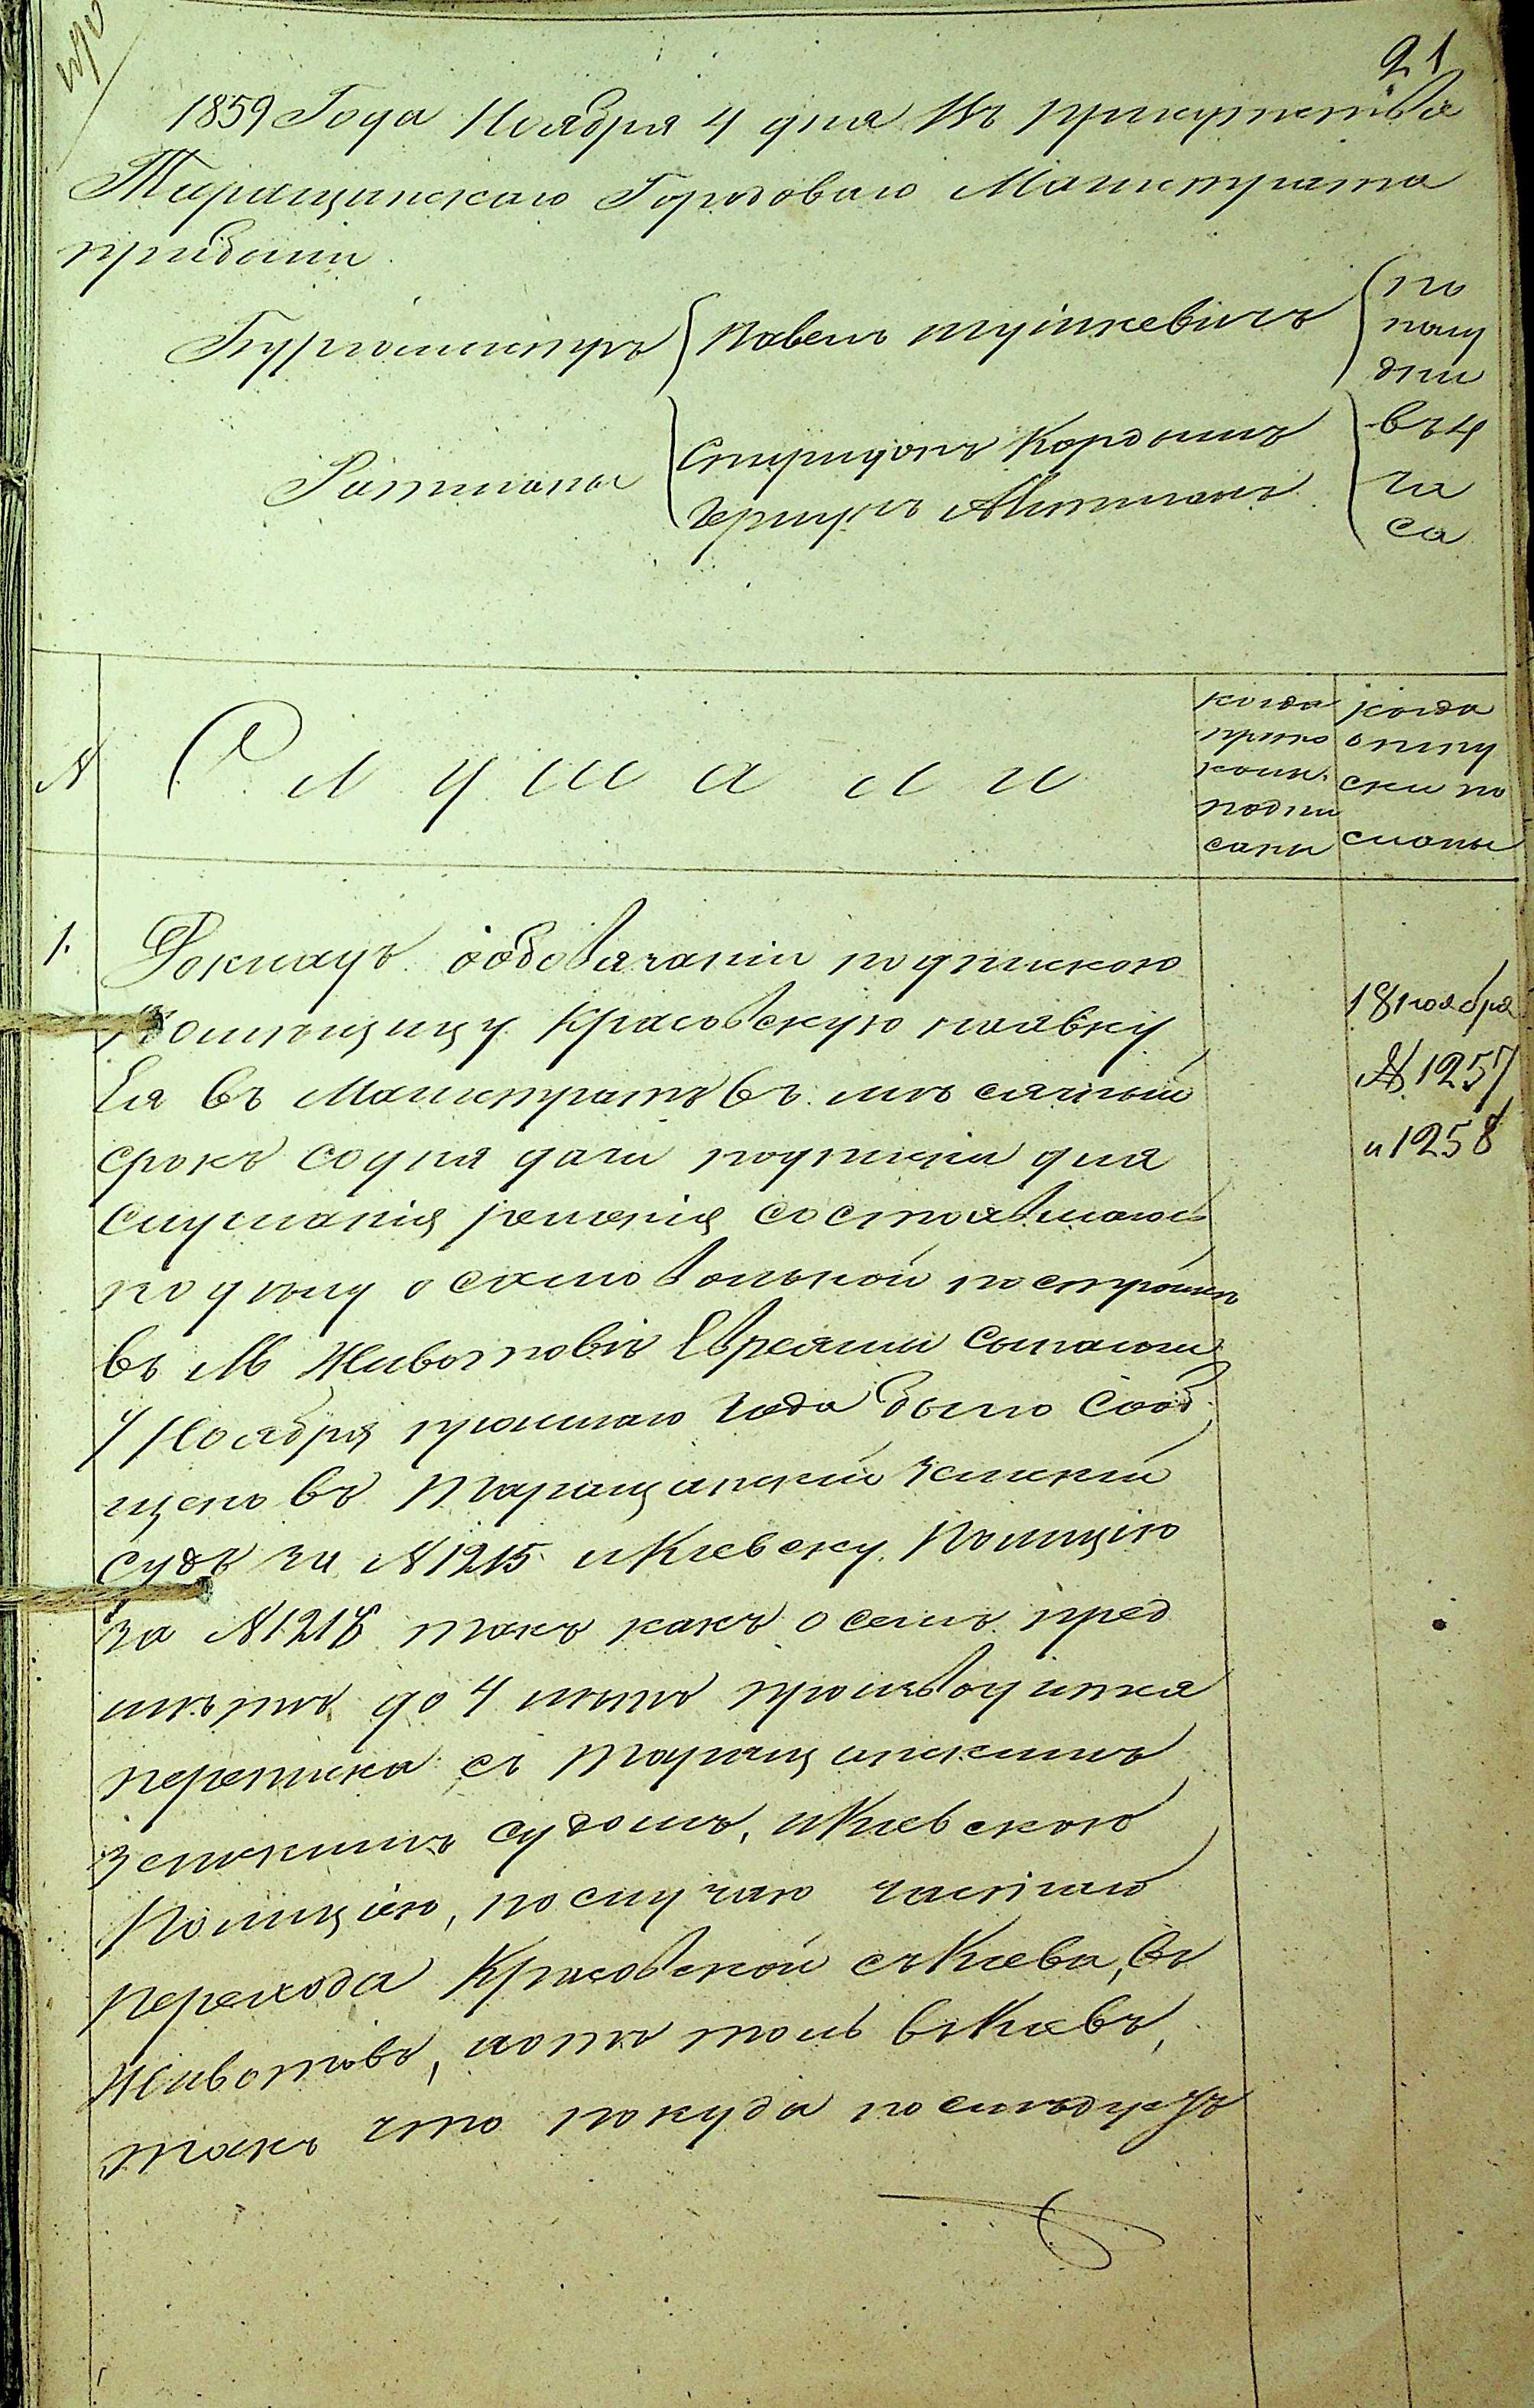 21
1859 Года Ноября 4 дня Въ присутствіе
Таращанскаго Городоваго Магистрата
прибыли
Бургомистръ Павелъ по
полу
дни
Ратманы Спиридонъ Кордышъ въ 4
Гершунъ Литманъ ча
са
№ Слушали
когда прото колы подпи саны
когда отпу ски по сланы
1. Докладъ обобязаніи подпискою
помѣщицу Красовскую наявку
Ея въ Магистратъ въ мѣсячный
срокъ содня дачи подписки для
слушанія рѣшенія состоявшагось
подѣлу о самовольной постройкѣ
въ М Животовкѣ Евреями
4 Ноября прошлаго года было Сооб
щено въ Таращанскій Земскій
судъ за №1215 и Кіевску Полицію
за №1218 такъ какъ о семъ пред
мѣтѣ до 4 лѣтъ производится
переписка съ Таращанскимъ
земскимъ судомъ, и Кіевскою
Полиціею, послучаю частаго
перехода Красовской съ Кіева, въ
Животовъ, а оттоль въ Кіевъ,
такъ что покуда послѣдуетъ
18 ноября
№ 1257
и 1258